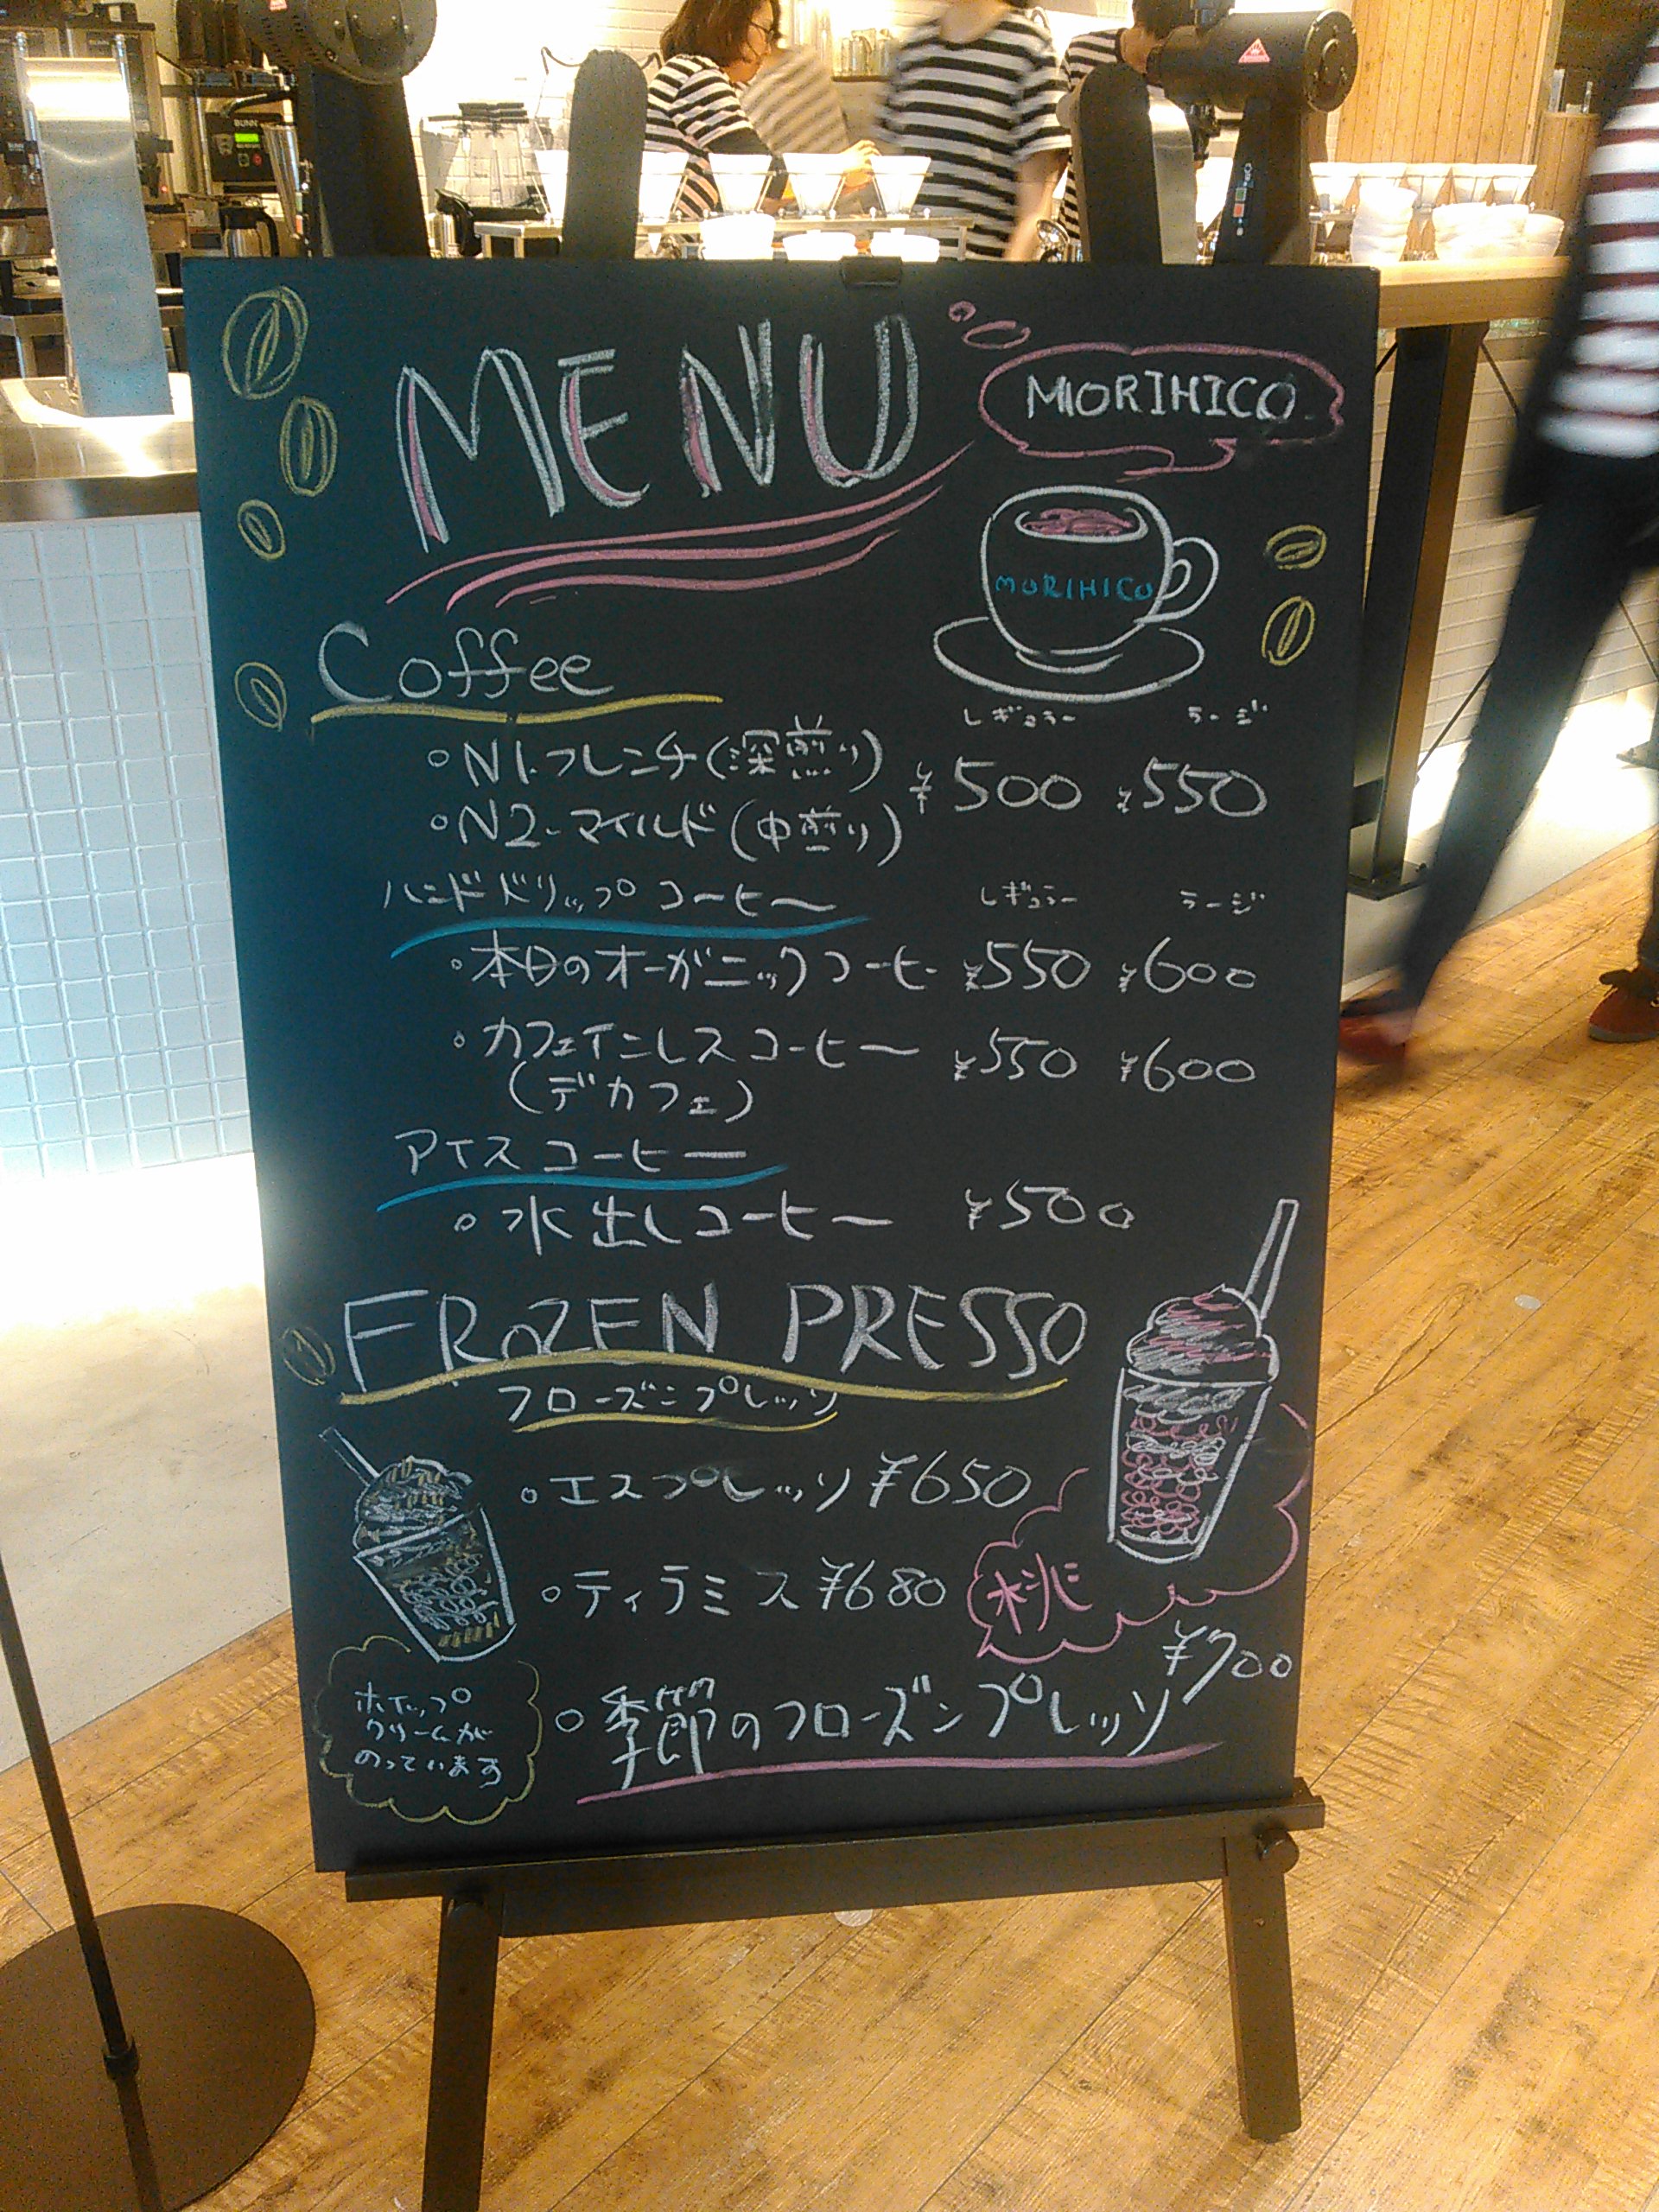 MENU
MORIHICO
MORIHICO
Coffee
レギュラー ラージ
N1.フレンチ(深煎り)
¥500 ¥550
N2-マイルド(中煎り)
ハンドドリップコーヒー レギュラー ラージ
・本日のオーガニックコーヒー ¥550 ¥600
・カフェインレスコーヒー ¥550 ¥600
(デカフェ)
アイスコーヒー
・水出しコーヒー ¥500
FROZEN PRESSO
フローズンプレッソ
・エスプレッソ ¥650
・ティラミス ¥680
桃
¥700
・季節のフローズンプレッソ
ホイップ
クリームが
のっています
BUNN